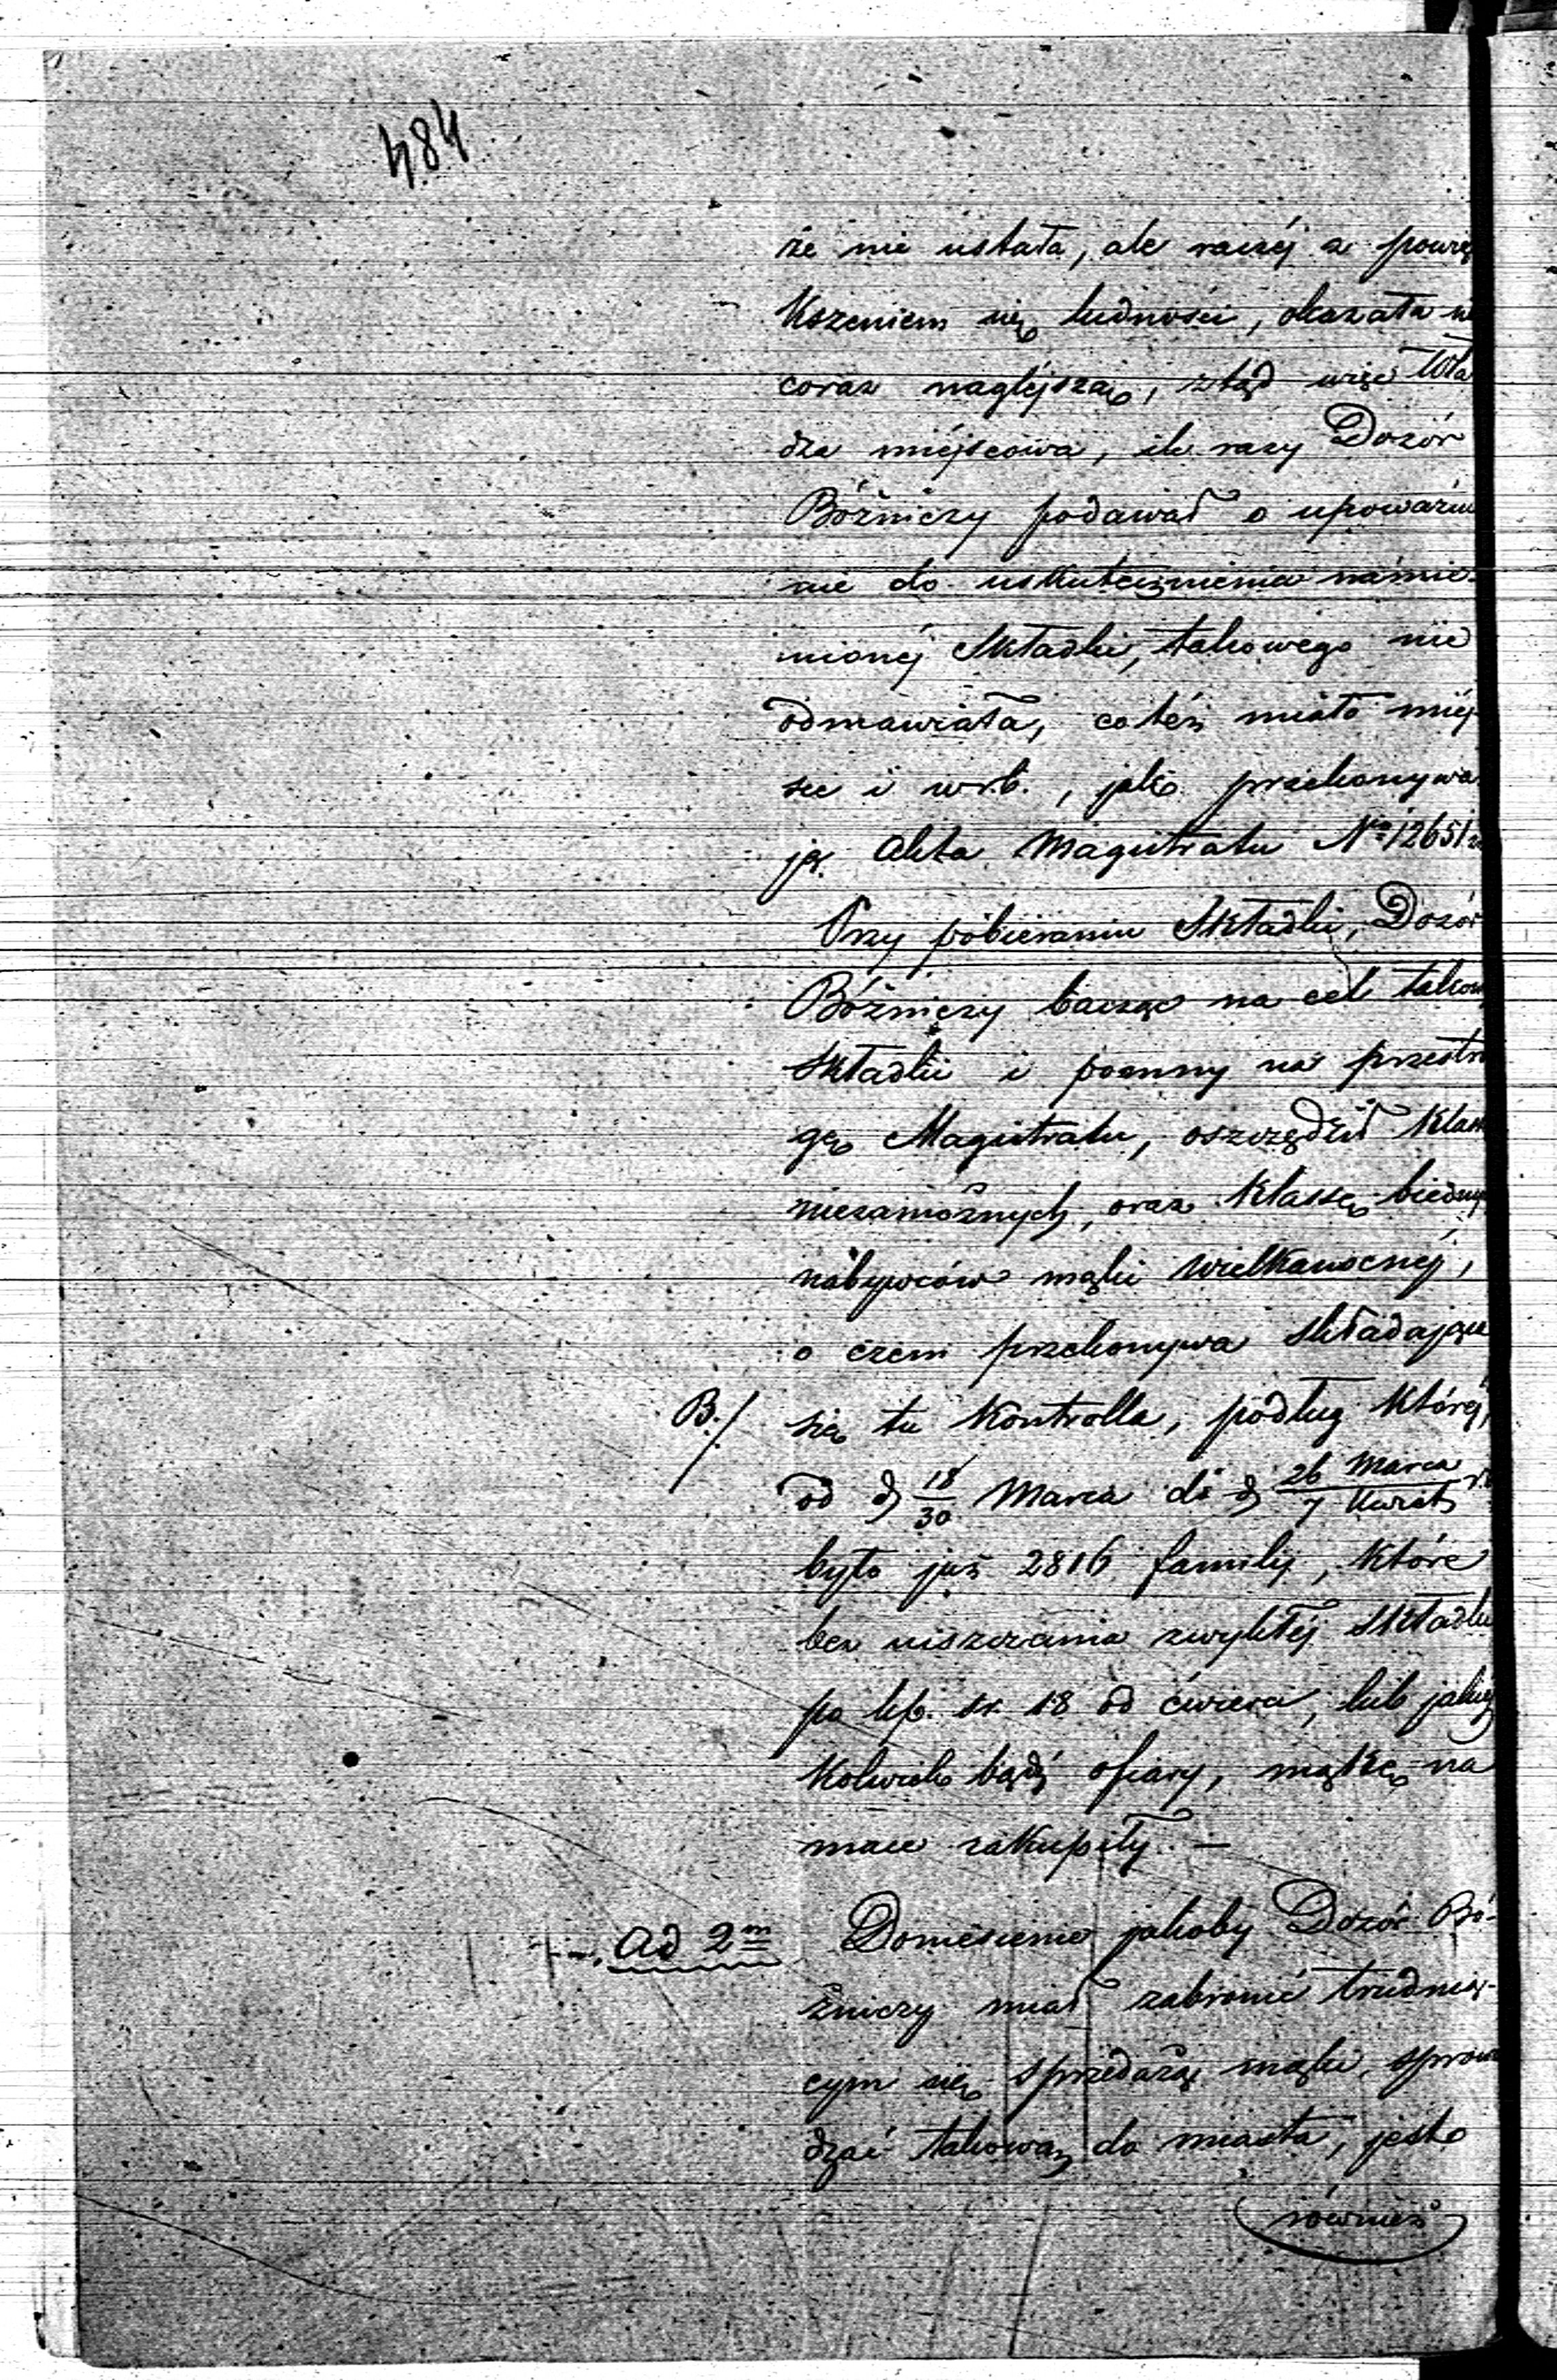 484
że nie ustała, ale raczéj z powię
kszeniem się ludności, okazała
coraz naglejszą, ztąd więc Wła
dza miéjscowa, ile razy Dozór
Bóżniczy podawał o upoważn
nie do uskutecznienia namie-
nionéj Składki, takowego nie
odmawiała, co téż miało miéj-
sce i w r.b., jak przekonywa
ją Akta Magistratu No 12651
Przy pobieraniu Składki, Dozór
Bóżniczy bacząc na cel takow
Składki i pomny na przestro
gę Magistratu, oszczędził Klas
niezamożnych, oraz Klassę biedny
nabywców mąki wielkanocnéj,
o czem przekonywa składająca
B./ się tu Kontrolla, podług któréj,
od d 18/30 Marca do d 26 Marca/7 Kwiet r.
było już 2816 familij, które
bez uiszczenia zwykłéj Składki
po kp. sr. 18 od ćwierci, lub jakiéj
kolwiek bądź ofiary, mąkę na
mace zakupiły. —
Ad 2m Doniesienie jakoby Dozór Bó-
żniczy miał zabronić trudnią-
cym się sprzedażą mąki, sprow
dzać takową do miasta, jest
również